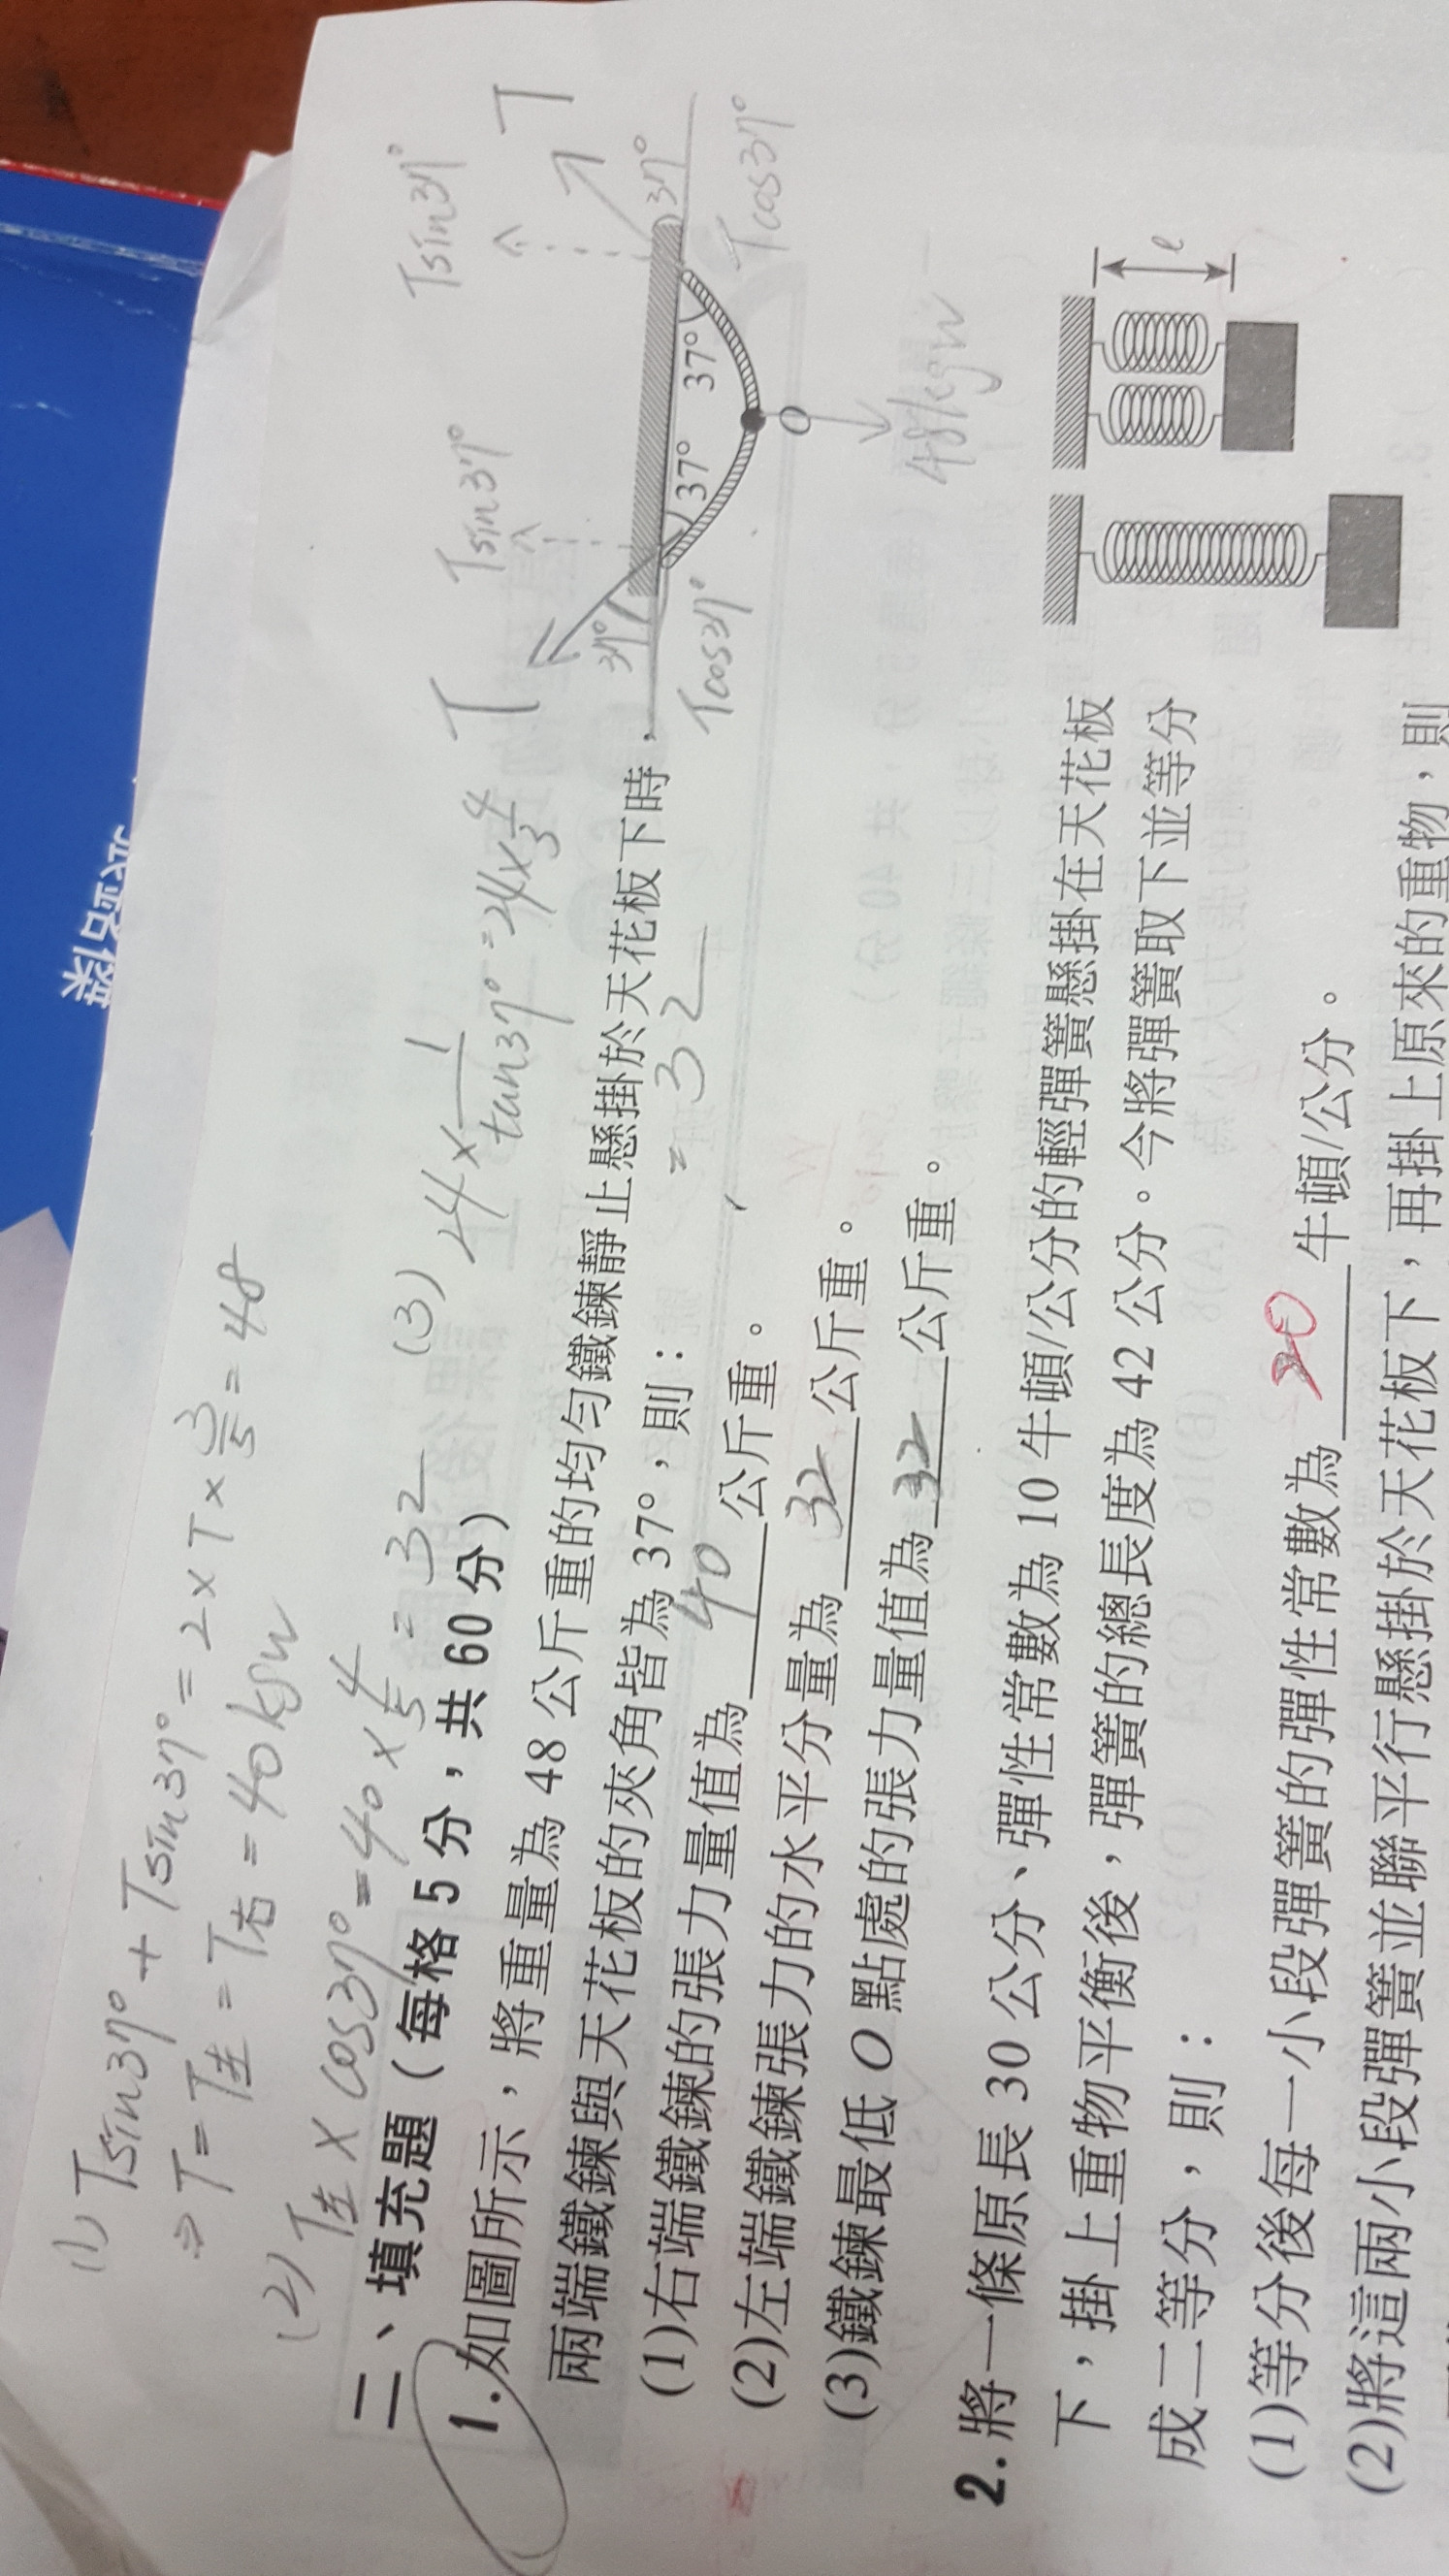 (1) Tsin37° + Tsin37° = 2 × T × 3/5 = 48
⇒ T = T左 = T右 = 40 kgw
(2) T左 × cos37° = 40 × 4/5 = 32
(3) 24 × 1/tan37° = 24 × 4/3
= 32
二、填充題(每格 5 分,共 60 分)
1. 如圖所示,將重量為 48 公斤重的均勻鐵鍊靜止懸掛於天花板下時,
兩端鐵鍊與天花板的夾角皆為 37°,則:
(1)右端鐵鍊的張力量值為 40 公斤重。
(2)左端鐵鍊張力的水平分量為 32 公斤重。
(3)鐵鍊最低 O 點處的張力量值為 32 公斤重。
T
Tsin37°
Tsin37°
T
37°
37°
37°
37°
Tcos37°
Tcos37°
O
48kgw
2. 將一條原長 30 公分、彈性常數為 10 牛頓/公分的輕彈簧懸掛在天花板
下,掛上重物平衡後,彈簧的總長度為 42 公分。今將彈簧取下並等分
成二等分,則:
(1)等分後每一小段彈簧的彈性常數為 20 牛頓/公分。
(2)將這兩小段彈簧並聯平行懸掛於天花板下,再掛上原來的重物,則
ℓ